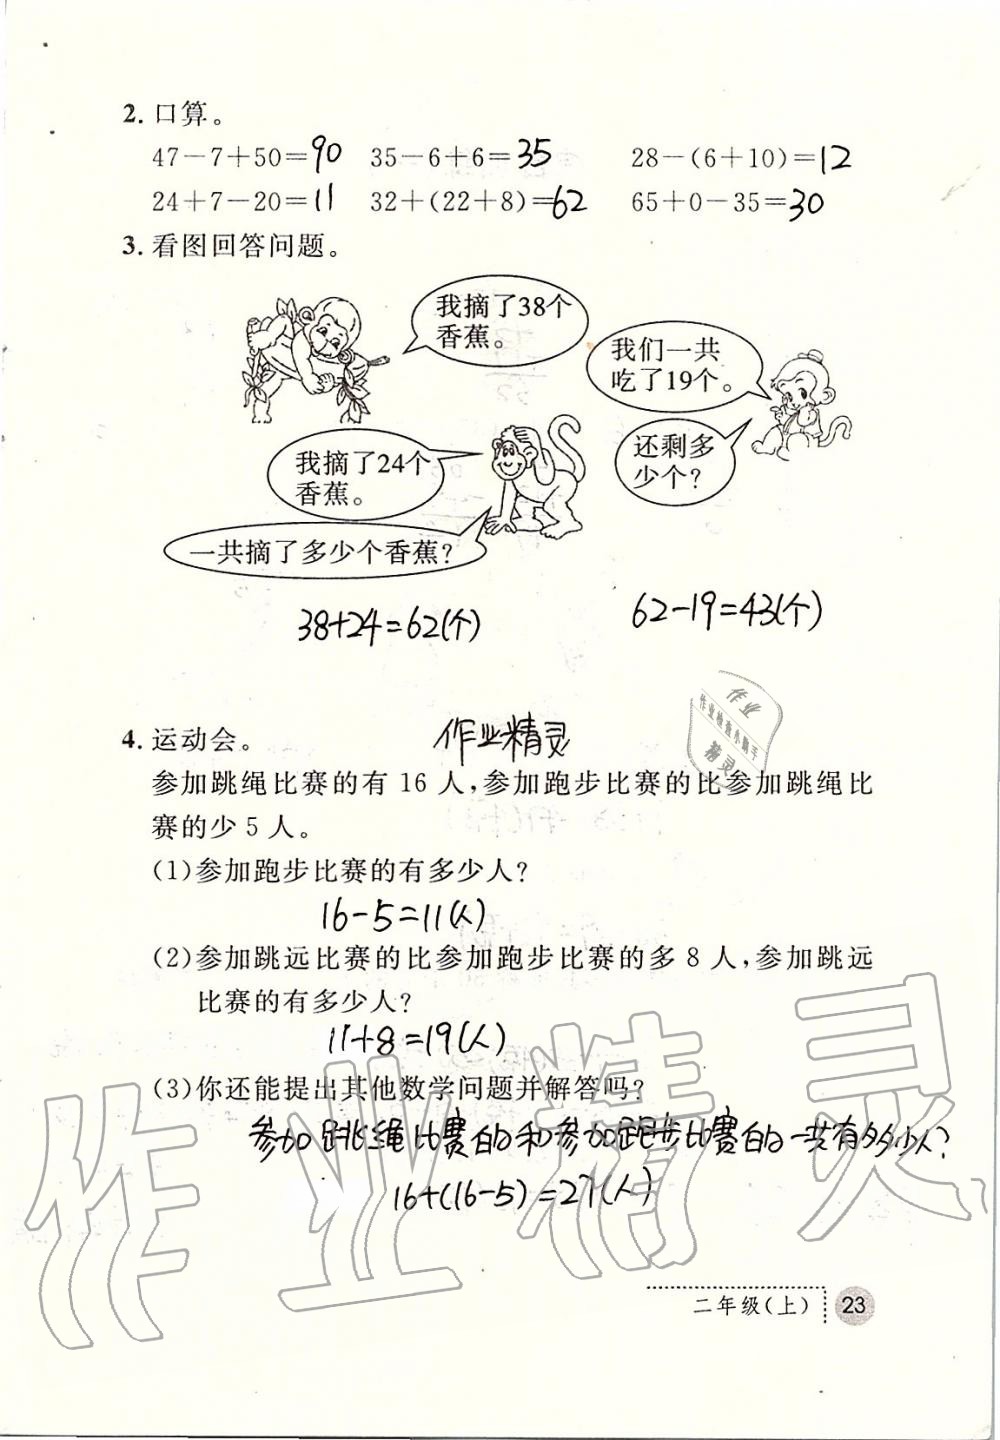 2. 口算。
47-7+50=90 35-6+6=35 28-(6+10)=12
24+7-20=11 32+(22+8)=62 65+0-35=30
3. 看图回答问题。
我摘了38个
香蕉。
我们一共
吃了19个。
我摘了24个
香蕉。
还剩多
少个?
一共摘了多少个香蕉?
38+24=62(个)
62-19=43(个)
4. 运动会。
作业精灵
作业
作业检查小助手
精灵
参加跳绳比赛的有16人,参加跑步比赛的比参加跳绳比
赛的少5人。
(1)参加跑步比赛的有多少人?
16-5=11(人)
(2)参加跳远比赛的比参加跑步比赛的多8人,参加跳远
比赛的有多少人?
11+8=19(人)
(3)你还能提出其他数学问题并解答吗?
参加跳绳比赛的和参加跑步比赛的一共有多少人?
16+(16-5)=27(人)
作业精灵
二年级(上) 23